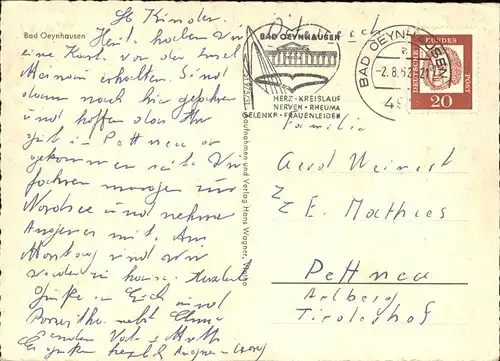 Lb Kinder.
Bad Oeynhausen
Heut. haben wir
eine Karte von der Insel
Mainau erhalten. Sind
dann nach hier gefahren
und hoffen das Ihr
gut in Pettneu an
gekommen seid. Wir
fahren morgen zur
Nordsee und nehmen
mit. Am
Montag sind wir
wieder in hause. Herzliche
Grüße an Euch und
nebst
senden Vati u Mutti
Es grüßen herzl.
BAD OEYNHAUSEN
HERZ-KREISLAUF
NERVEN-RHEUMA
GELENKE-FRAUENLEIDEN
BAD OEYNHAUSEN
a
-2.8.62-21
DEUTSCHE BUNDESPOST
20
aufnahmen und Verlag Hans Wagner,
Familie
Aerd Weinert
Z
Z E. Mathies
Pettneu
Arlberg
Tirolerhof